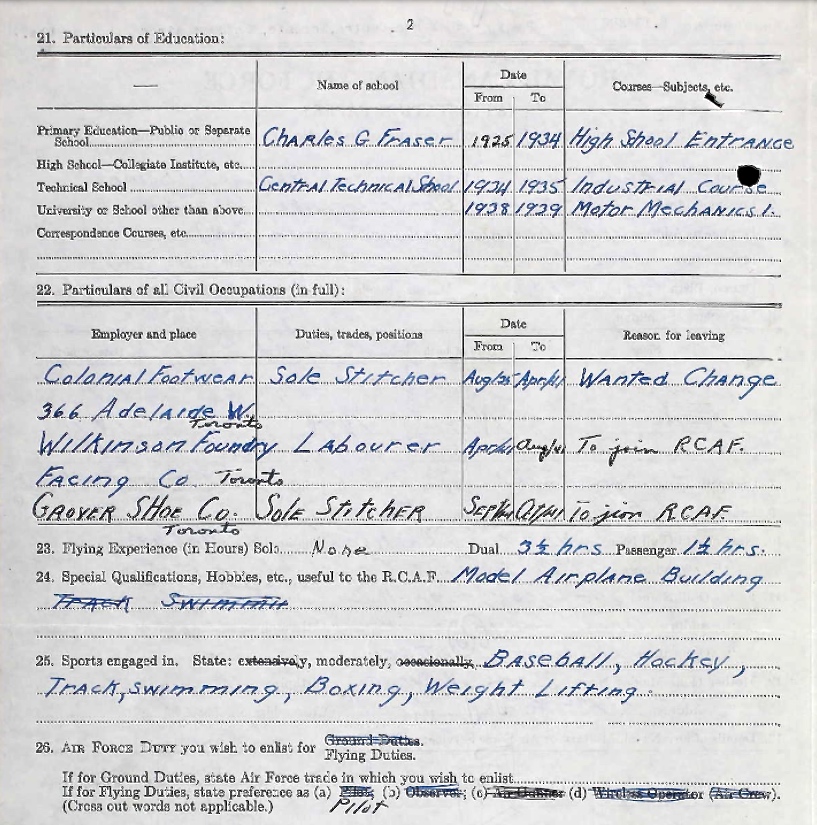 2
21. Particulars of Education:
— Name of school Date Courses—Subjects, etc.
From To
Primary Education—Public or Separate
School Charles G Fraser 1925 1934 High School Entrance
High School—Collegiate Institute, etc.
Technical School Central Technical School 1934 1935 Industrial Course
University or School other than above 1938 1939 Motor Mechanics 1.
Correspondence Courses, etc.
22. Particulars of all Civil Occupations (in full):
Employer and place Duties, trades, positions Date Reason for leaving
From To
Colonial Footwear Sole Stitcher Wanted Change
366 Adelaide W.
Toronto
Wilkinson Foundry Labourer To join RCAF.
Facing Co. Toronto
Grover Shoe Co. Sole Stitcher To join RCAF
Toronto
23. Flying Experience (in Hours) Solo None Dual 3½ hrs Passenger 1½ hrs.
24. Special Qualifications, Hobbies, etc., useful to the R.C.A.F. Model Airplane Building
Track
25. Sports engaged in. State: extensively, moderately, occasionally, Baseball, Hockey,
Track, swimming, Boxing, Weight Lifting.
26. Air Force Duty you wish to enlist for Ground Duties.
Flying Duties.
If for Ground Duties, state Air Force trade in which you wish to enlist
If for Flying Duties, state preference as (a) Pilot; (b) Observer; (c) Air Gunner (d) Wireless Operator (Air Crew).
(Cross out words not applicable.) Pilot